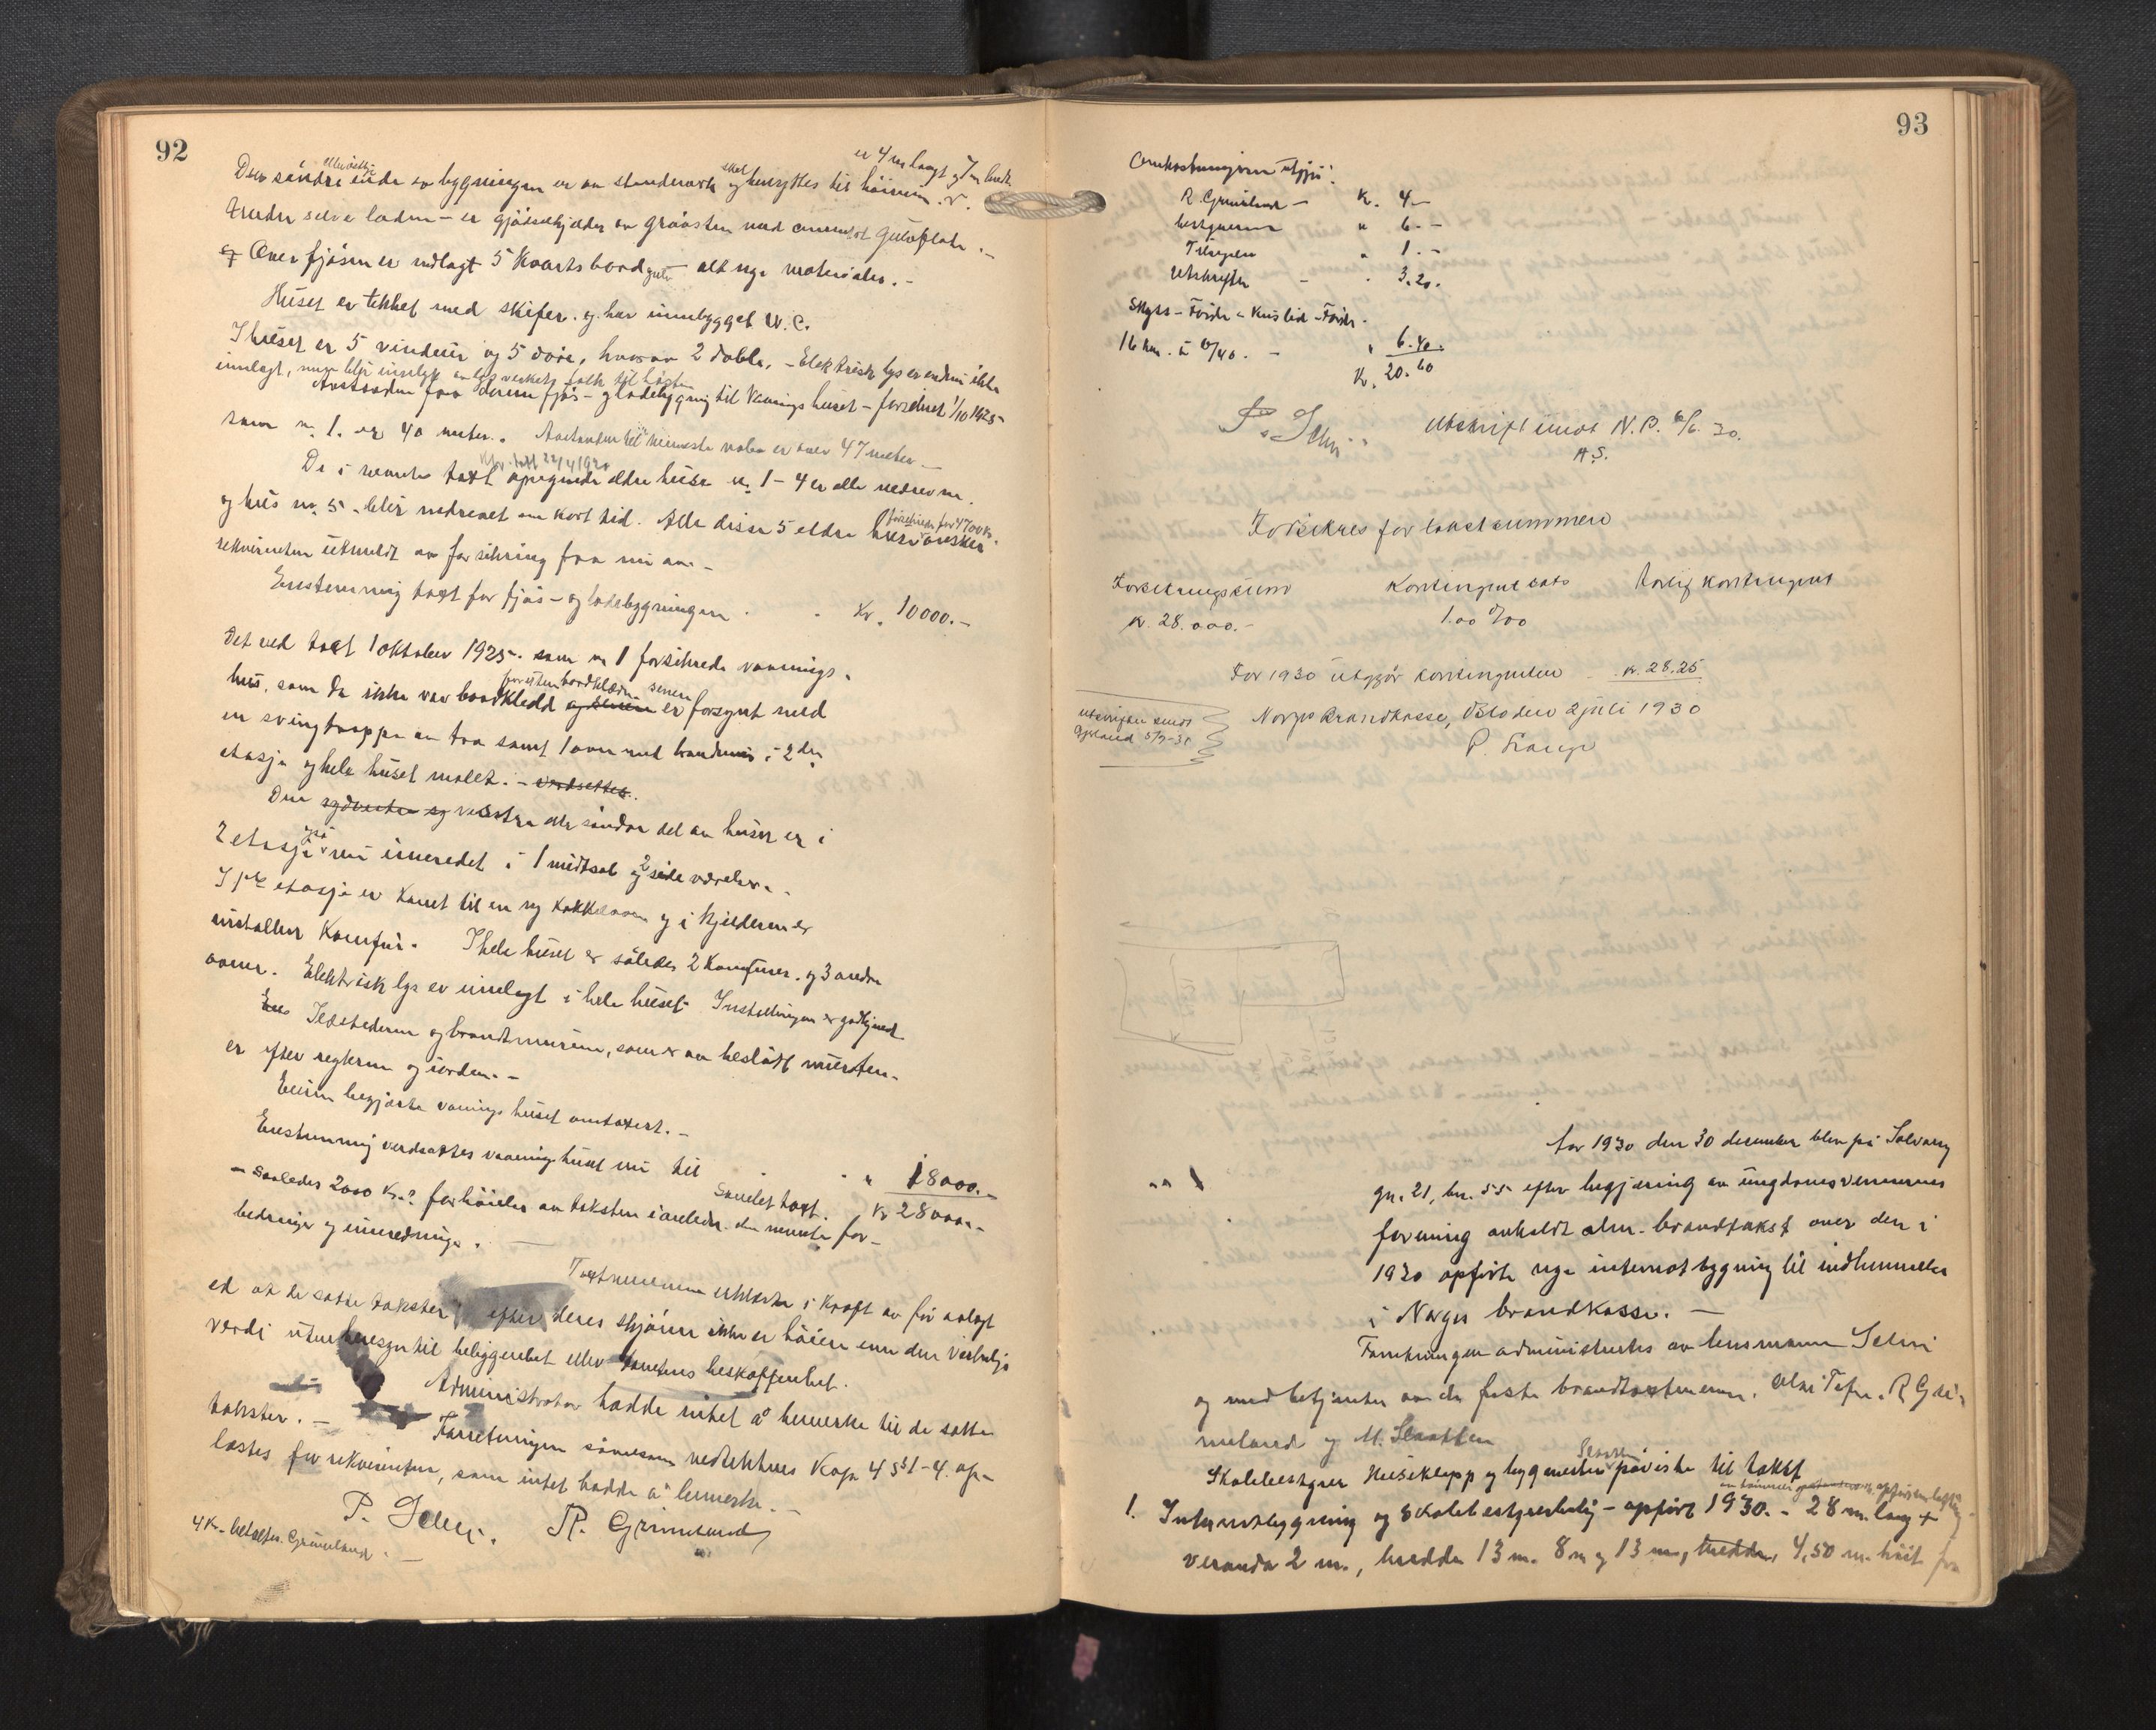 92
er 4 m langt og 7 m bredt
Den søndre ende av bygningen er av stenderverk og skal benyttes til
selve laden – er gjødselkjelder av gråsten med cementgulv
Over fjøsen er indlagt 5 kvarts bordgulv alt nye materialer. –
Huset er tekket med skifer. og har innebygget W.C.
I huset er 5 vinduer og 5 døre, hvorav 2 doble, – Elektrisk lys er endnu ikke
innlagt, men blir innlagt av lysverkets folk til høsten
Avstanden fra denne fjøs – og ladebygning til vaaningshuset – forsikret 1/10 1925
som nr. 1. er 40 meter. Avstanden til nærmeste nabo er over 47 meter –
22/4 1920
De i nevnte takst opregnede eldre huse nr. 1 – 4 er alle nedrevne.
og hus nr. 5 – blir nedrevet om kort tid. Alle disse 5 eldre huse forsikrede for 4700 kr. ønsker
rekvirenten utmeldt av forsikring fra nu av. –
Enstemmig takst for fjøs – og ladebygningen
Kr. 10000. –
Det ved takst 1 oktober 1925. som nr 1 forsikrede vaanings-
hus, som da ikke var bordkledd er senere forsynt med
en svingtrappe av tre samt 1 ovn med brandmur i 2den
etasje og hele huset malet. – verdsettes.
Den vestre eller søndre del av huset er i
2 etasje også nu inneredet i 1 midtsal og 2 side værelser. –
I 1ste etasje er kommet til en ny kakkelovn og i kjelderen er
installert komfur. I hele huset er således 2 komfurer. og 3 andre
ovner. Elektrisk lys er innlagt i hele huset. Installasjonen er godkjendt
Ildstederne og brandmurene, som er av beslått mursten.
er efter reglerne og i orden. –
Eieren begjærte vaaningshuset omtaxert. –
Enstemmig verdsattes vaaningshuset nu til
" 18000. –
Samlet takst. Kr 28000. –
– saaledes 2000 Kr. forhøielse av taksten i anledn. den nevnte for-
bedringer og inneredninger. –
Takstmennene erklærte i kraft av før avlagt
ed at de satte takster efter deres skjønn ikke er høiere enn den virkelige
verdi uten hensyn til beliggenhet eller tomtens beskaffenhet.
Administrator hadde intet å bemerke til de satte
takster. –
Forretningen såvelsom vedtekternes Kap 4 §§ 1 – 4. op-
læstes for rekvirenten, som intet hadde å bemerke. –
P. Selm. R. Grimeland
4 Kr. – betalt R. Grimeland. –
93
Omkostningerne utgjør:
R. Grimeland – Kr. 4 –
bestyreren " 6. –
Tilsynet " 1. –
Utskriften – " 3.20.
Skyss – Førde –
16 km. à 0/40. – " 6.40.
Kr. 20.60
P. Selm. Utskrift sendt N.B. 6/6. 30.
A.S.
Forsikres for takstsummen
Forsikringssum Kontingent sats Aarlig kontingent
kr. 28.000. – 1.00 0/00
For 1930 utgjør kontingenten kr. 28.25
Norges Brandkasse, Oslo den 2 juli 1930
utskriften sendt
År 1930 den 30 desember blev på Solvang
gn. 21, bn. 55 efter begjæring av ungdomsvennernes
forening avholdt alm. brandtakst over den i
1930 opførte nye internatbygning til indlemmelse
i Norges brandkasse. –
Forretningen administrertes av lensmann Selm
og medbetjenter var de faste brandtakstmenn. R Gri-
meland og M.
Skolebestyrer Huseklepp og bygmester påviste til takst
1. Internatbygning og Skolebestyrerbolig – opført 1930. – 28 m. lang +
veranda 2 m., bredde 13 m. 8 m og 13 m, bredde, 4,50 m. høit fra